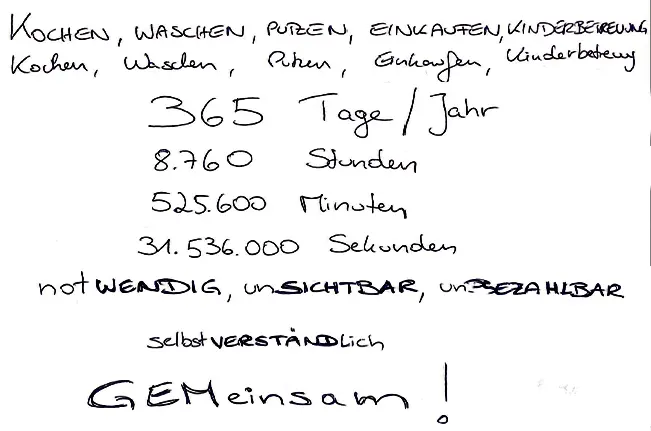 KOCHEN, WASCHEN, PUTZEN, EINKAUFEN, KINDERBETREUUNG
Kochen, Waschen, Putzen, Einkaufen, Kinderbetreuung
365 Tage / Jahr
8.760 Stunden
525.600 Minuten
31.536.000 Sekunden
notWENDIG, unSICHTBAR, unBEZAHLBAR
selbstVERSTÄNDlich
GEMeinsam!